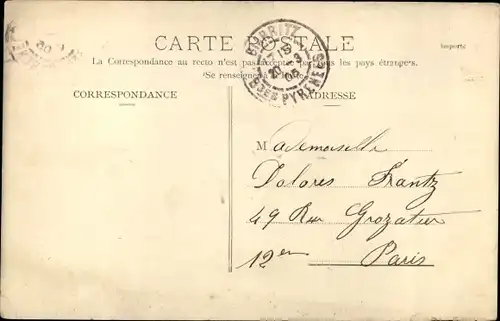 CARTE POSTALE
La Correspondance au recto n'est pas acceptée par tous les pays étrangers.
(Se renseigner à la Poste)
BIARRITZ
BSES PYRENEES
Importé
CORRESPONDANCE
ADRESSE
Mademoiselle
Dolores Frantz
49 Rue Crozatier
12er
Paris